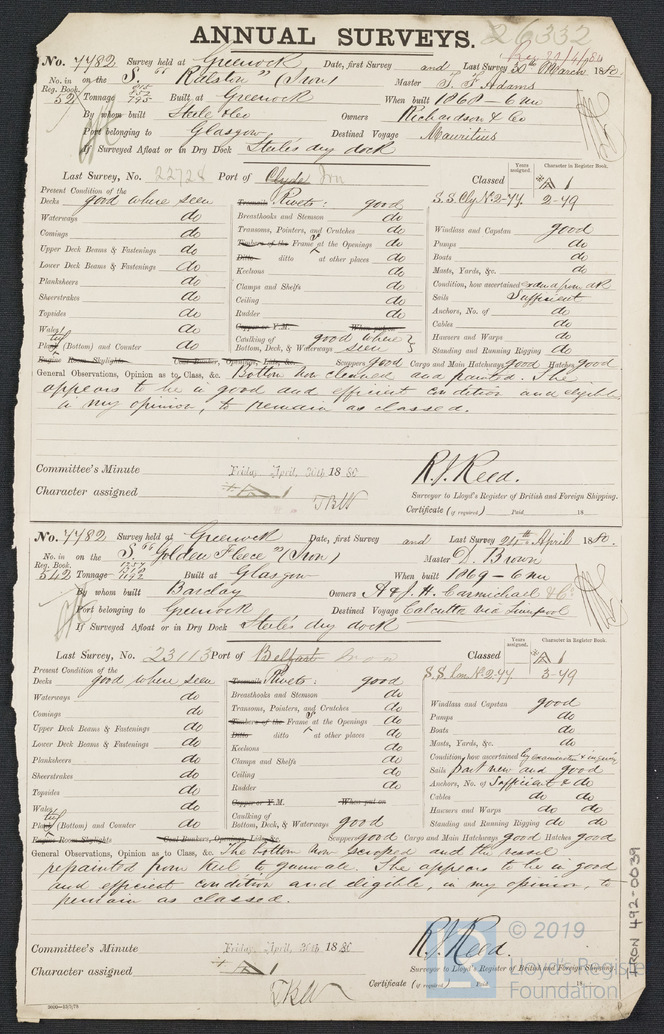 ANNUAL SURVEYS. 26332
No. 7782 Survey held at Greenock Date, first Survey and Last Survey 30th March 1880.
No. in Reg. Book. on the S. "Ralston" (Iron) Master T. F. Adams
52 Tonnage 795 Built at Greenock When built 1868 - 6 mo
By whom built Steele &Co Owners Richardson & Co
Port belonging to Glasgow Destined Voyage Mauritius
If Surveyed Afloat or in Dry Dock Steele's dry dock
Last Survey, No. 22728 Port of Clyde Classed
Years assigned. Character in Register Book.
S.S. Cly No.2-77 2-79
Present Condition of the
Decks good where seen Rivets: good
Waterways do Breasthooks and Stemson do Windlass and Capstan good
Comings do Transoms, Pointers, and Crutches do Pumps do
Upper Deck Beams & Fastenings do Timbers of the Frame at the Openings do Boats do
Lower Deck Beams & Fastenings do Ditto ditto at other places do Masts, Yards, &c. do
Planksheers do Keelsons do Condition, how ascertained
Sheerstrakes do Clamps and Shelfs do Sails Sufficient
Topsides do Ceiling do Anchors, No. of do
Wales do Rudder do Cables do
Copper or Y.M. When put on Hawsers and Warps do
(Bottom) and Counter do Caulking of Bottom, Deck, & Waterways good where seen Standing and Running Rigging do
Engine Room Skylights Coal Bunkers, Openings, Lids, &c. Scuppers good Cargo and Main Hatchways good Hatches good
General Observations, Opinion as to Class, &c. Bottom now cleaned and painted. She
appears to be in good and efficient condition and eligible
in my opinion, to remain as classed.
Committee's Minute Friday, April, 30th 1880
Character assigned
R. J. Reed.
Surveyor to Lloyd's Register of British and Foreign Shipping.
Certificate (if required) Paid 18
No. 7782 Survey held at Greenock Date, first Survey and Last Survey 24th April 1880.
No. in Reg. Book. on the S. "Golden Fleece" (Iron) Master D. Brown
542 Tonnage 1257 1192 Built at Glasgow When built 1869 - 6 mo
By whom built Barclay Owners A & J. H. Carmichael & Co
Port belonging to Greenock Destined Voyage Calcutta via Liverpool
If Surveyed Afloat or in Dry Dock Steele's dry dock
Last Survey, No. 23113 Port of Belfast Classed
Years assigned. Character in Register Book.
S.S. Lon No.2-77 3-79
Present Condition of the
Decks good where seen Rivets: good
Waterways do Breasthooks and Stemson do Windlass and Capstan good
Comings do Transoms, Pointers, and Crutches do Pumps do
Upper Deck Beams & Fastenings do Timbers of the Frame at the Openings do Boats do
Lower Deck Beams & Fastenings do Ditto ditto at other places do Masts, Yards, &c. do
Planksheers do Keelsons do Condition, how ascertained by examination & inquiry
Sheerstrakes do Clamps and Shelfs do Sails part new and good
Topsides do Ceiling do Anchors, No. of Sufficient & do
Wales do Rudder do Cables do do
Copper or Y.M. When put on Hawsers and Warps do do
(Bottom) and Counter do Caulking of Bottom, Deck, & Waterways good Standing and Running Rigging do do
Engine Room Skylights Coal Bunkers, Openings, Lids, &c. Scuppers good Cargo and Main Hatchways good Hatches good
General Observations, Opinion as to Class, &c. The bottom now scraped and the vessel
repainted from keel to gunwale. She appears to be in good
and efficient condition and eligible, in my opinion, to
remain as classed.
Committee's Minute Friday, April, 30th 1880
Character assigned
R. J. Reed.
Surveyor to Lloyd's Register of British and Foreign Shipping.
Certificate (if required) Paid 18
IRON 492-0039
© 2019
Lloyd's Register
Foundation